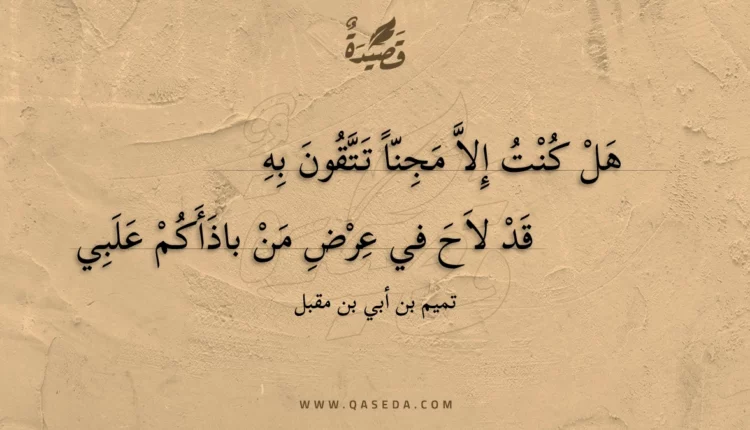 قَصِيدَةٌ
هَلْ كُنْتُ إِلاَّ مَجِنّاً تَتَّقُونَ بِهِ
قَدْ لاَحَ في عِرْضِ مَنْ باذَأَكُمْ عَلَبِي
تميم بن أبي بن مقبل
WWW.QASEDA.COM